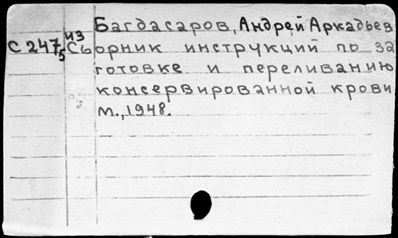 Багдасаров, Андрей Аркадьев
из
С 247/5 Сборник инструкций по за
готовке и переливанию
консервированной крови
М., 1948.